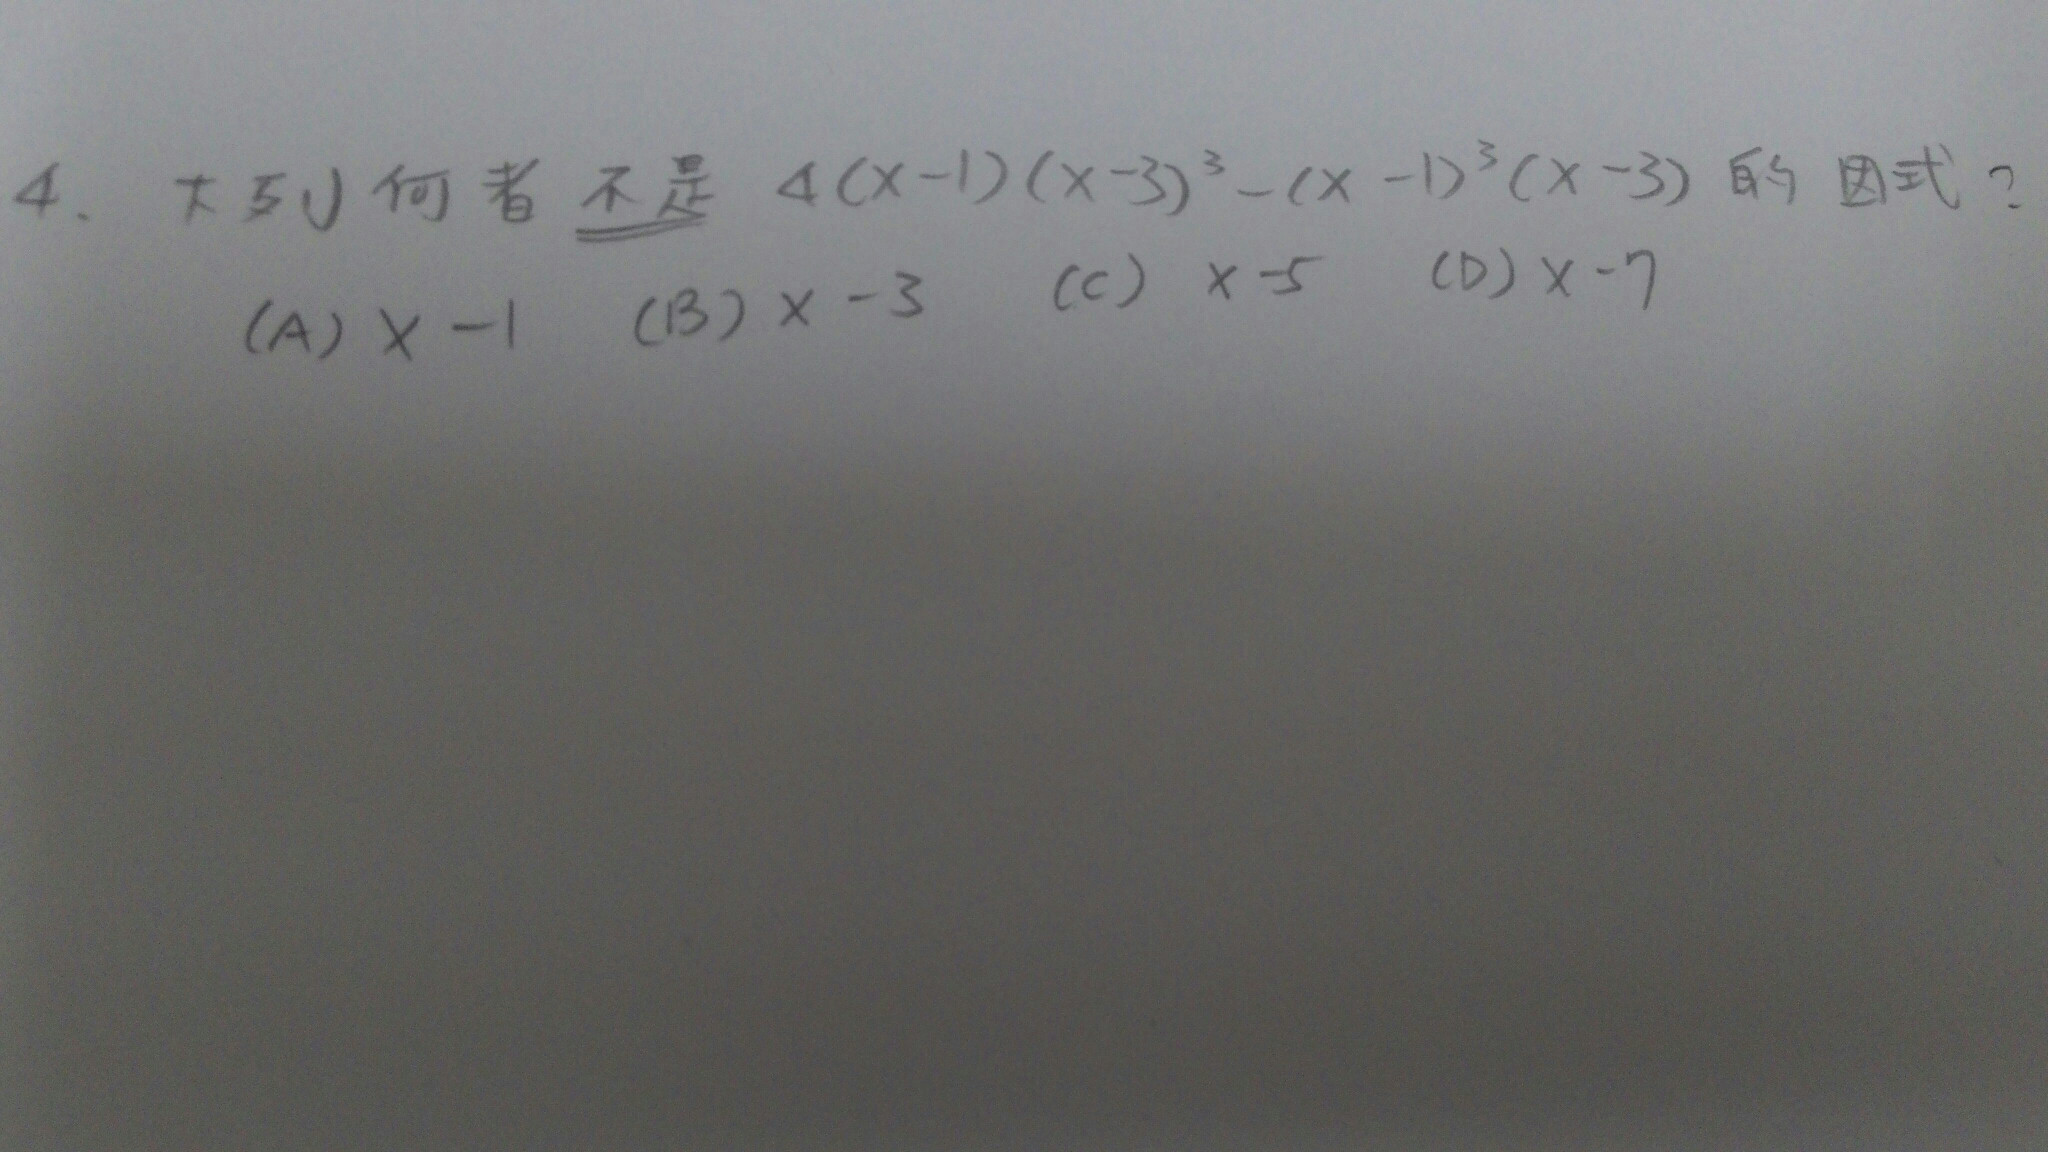 4. 下列何者不是 4(x-1)(x-3)³-(x-1)³(x-3) 的因式?
(A) x-1 (B) x-3 (C) x-5 (D) x-7